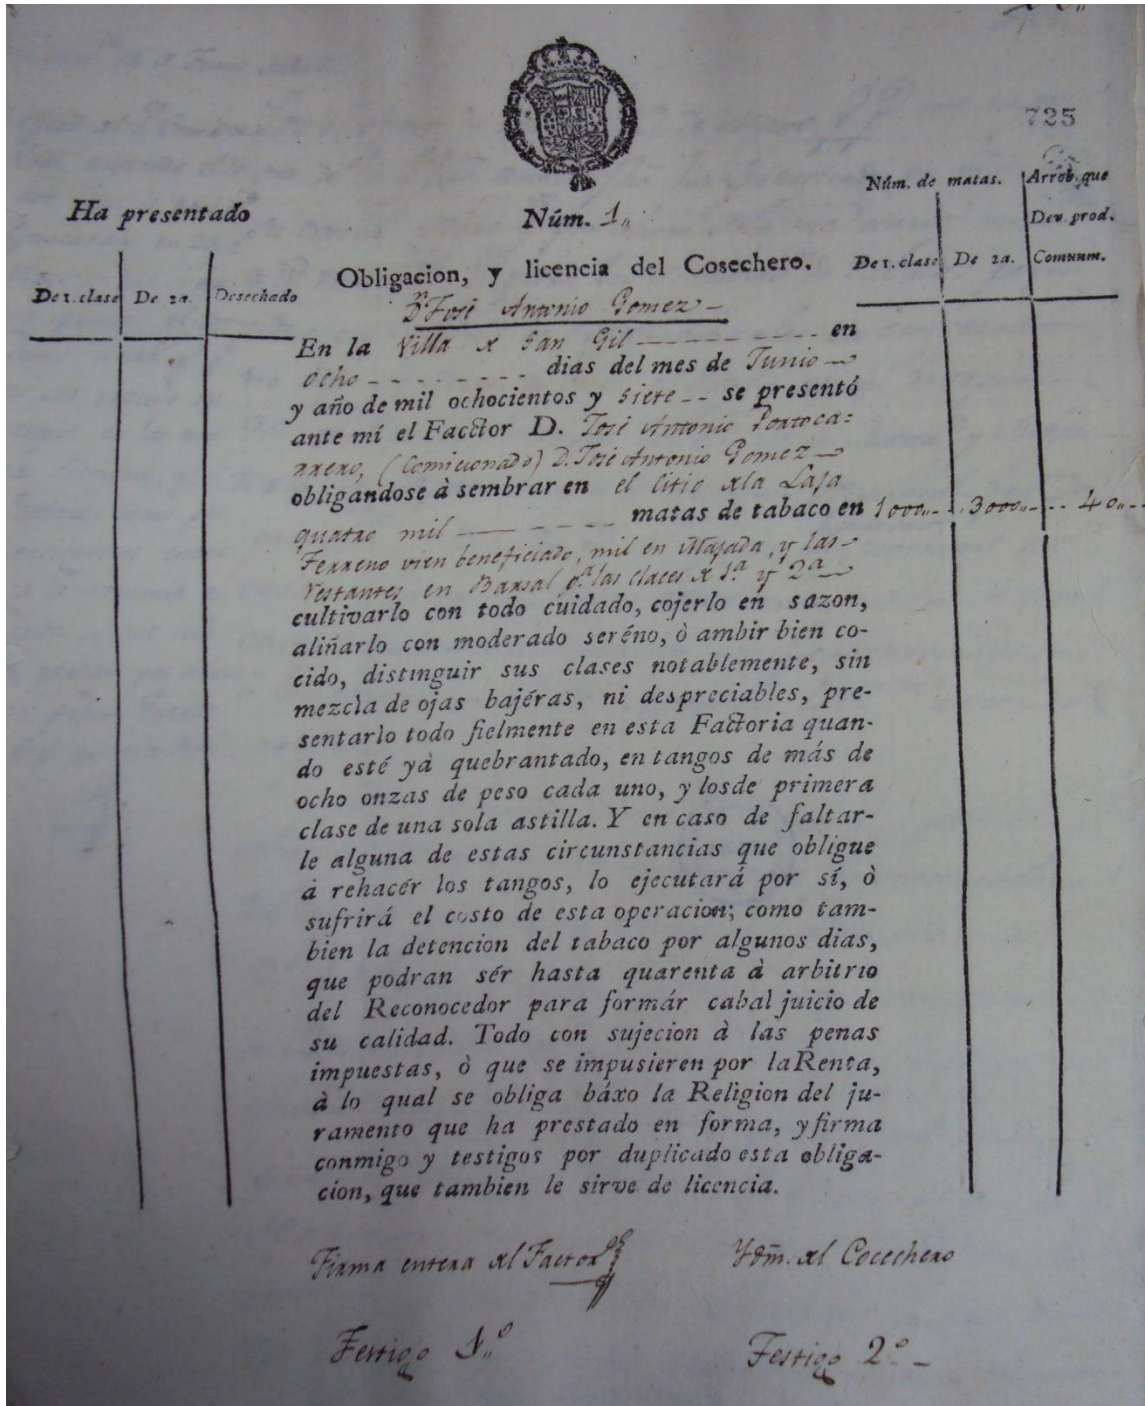 725
Ha presentado
De 1. clase
De 2a.
Desechado
Núm. de matas.
De 1. clase
De 2a.
Arrob. que
Dev. prod.
Comunm.
Núm. 1,,
Obligacion, y licencia del Cosechero.
Dn José Antonio Gomez
En la Villa de San Gil en
ocho dias del mes de Junio
y año de mil ochocientos y siete se presentó
ante mí el Factor D. José Antonio Portoca-
rrero, (Comicionado) D. José Antonio Gomez
obligandose à sembrar en el Citio de la Laja
quatro mil matas de tabaco en 1000,, 3000,, 40
Terreno vien beneficiado, mil en Majada, y las
restantes en Barsal pa. las claces de 1a y 2a
cultivarlo con todo cuidado, cojerlo en sazon,
aliñarlo con moderado seréno, ò ambir bien co-
cido, distinguir sus clases notablemente, sin
mezcla de ojas bajéras, ni despreciables, pre-
sentarlo todo fielmente en esta Factoria quan-
do esté yà quebrantado, en tangos de más de
ocho onzas de peso cada uno, y losde primera
clase de una sola astilla. Y en caso de faltar-
le alguna de estas circunstancias que obligue
à rehacér los tangos, lo ejecutará por sí, ò
sufrirá el costo de esta operacion; como tam-
bien la detencion del tabaco por algunos dias,
que podran sér hasta quarenta à arbitrio
del Reconocedor para formár cabal juicio de
su calidad. Todo con sujecion à las penas
impuestas, ò que se impusieren por laRenta,
à lo qual se obliga báxo la Religion del ju-
ramento que ha prestado en forma, yfirma
conmigo y testigos por duplicado esta obliga-
cion, que tambien le sirve de licencia.
Firma entera del Factor
Ydm. del Cocechero
Testigo 1,,o
Testigo 2,,o